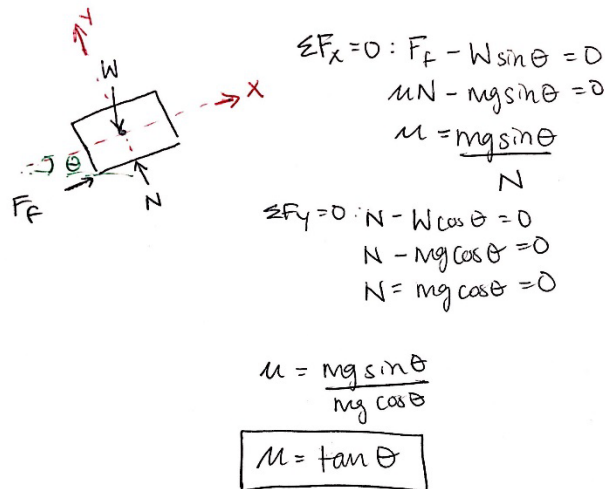 Y
W
X
θ
F_f
N
ΣF_x=0: F_f - W sin θ = 0
μN - mg sin θ = 0
μ = mg sin θ
N
ΣF_y=0: N - W cos θ = 0
N - mg cos θ = 0
N = mg cos θ = 0
μ = mg sin θ
mg cos θ
μ = tan θ